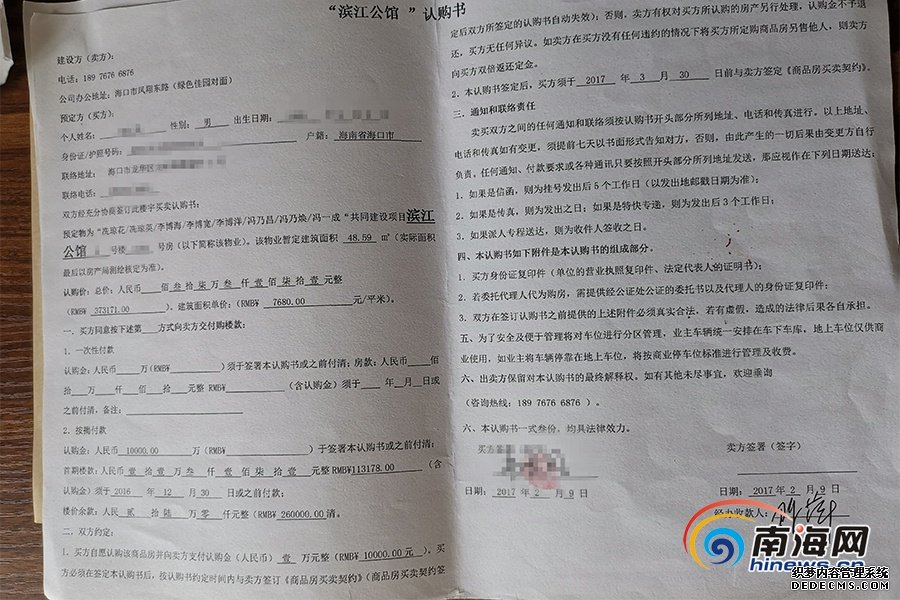 “滨江公馆 ”认购书
建设方（卖方）：
电话：189 7676 6876
公司办公地址：海口市凤翔东路（绿色佳园对面）
预定方（买方）：
个人姓名： 性别： 男 出生日期：
身份证/护照号码： 户籍： 海南省海口市
联络地址： 海口市龙华区
联络电话：
双方经充分协商签订此楼宇买卖认购书：
预定物为“冼琼花/冼琼英/李博海/李博宽/李博洋/冯乃昌/冯乃焕/冯一成“共同建设项目滨江
公馆 号楼 号房（以下简称该物业）。该物业暂定建筑面积 48.59 ㎡（实际面积
最后以房产局测绘核定为准）。
认购价：总价：人民币 佰 叁 拾 柒 万 叁 仟 壹 佰 柒 拾 壹 元整
（RMB¥ 373171.00 ）、建筑面积单价：（RMB¥ 7680.00 元/平米）。
一、买方同意按下述第 方式向卖方交付购楼款：
1. 一次性付款
认购金：人民币 万（RMB¥ ）须于签署本认购书或之前付清；房款：人民币 佰
拾 万 仟 佰 拾 元整 RMB¥ （含认购金）须于 年 月 日或
之前付清，备注：
2. 按揭付款
认购金：人民币 10000.00 万（RMB¥ ）于签署本认购书或之前付清；
首期楼款：人民币 壹 拾 壹 万 叁 仟 壹 佰 柒 拾 壹 元整 RMB¥113178.00 （含
认购金）须于 2016 年 12 月 30 日或之前付款；
楼价余款：人民 贰 拾 陆 万 零 仟元整（RMB¥ 260000.00 清。
二、双方约定：
1. 买方自愿认购该商品房并向卖方支付认购金（人民币） 壹 万元整（RMB¥10000.00 元 ），买
方必须在签定本认购书后，按认购书约定时间内与卖方签订《商品房买卖契约》（商品房买卖契约签
定后双方所签定的认购书自动失效）；否则，卖方有权对买方所认购的房产另行处理，认购金不予退
还，买方无任何异议。如卖方在买方没有任何违约的情况下将买方所定购商品房另售他人，则卖方
向买方双倍返还定金。
2. 本认购书签定后，买方须于 2017 年 3 月 30 日前与卖方签定《商品房买卖契约》。
三、通知和联络责任
卖买双方之间的任何通知和联络须按认购书开头部分所列地址、电话和传真进行。以上地址、
电话和传真如有变更，须提前七天以书面形式告知对方，否则，由此产生的一切后果由变更方自行
负责。任何通知、付款要求或各种通讯只要按照开头部分所列地址发送，那应视作在下列日期送达：
1. 如果是信函，则为挂号发出后 5 个工作日（以发出地邮戳日期为准）；
2. 如果是传真，则为发出之日；如果是特快专递，则为发出后 3 个工作日；
3. 如果派人专程送达，则为收件人签收之日。
四、本认购书如下附件是本认购书的组成部分。
1. 买方身份证复印件（单位的营业执照复印件、法定代表人的证明书）；
2. 若委托代理人代为购房，需提供经公证处公证的委托书以及代理人的身份证复印件；
3. 双方在签订认购书之前提供的上述附件必须真实合法，若有虚假，造成的法律后果各自承担。
五、为了安全及便于管理将对车位进行分区管理，业主车辆统一安排在车下车库，地上车位仅供商
业使用，如业主将车辆停靠在地上车位，将按商业停车位标准进行管理及收费。
六、出卖方保留对本认购书的最终解释权。如有其他未尽事宜，欢迎垂询
（咨询热线：189 7676 6876 ）。
六、本认购书一式叁份，均具法律效力。
买方签 卖方签署（签字）
日期： 2017 年 2 月 9 日 日期： 2017 年 2 月 9 日
收款人：
南海网
www.hinews.cn
织梦内容管理系统
DEDECMS.COM